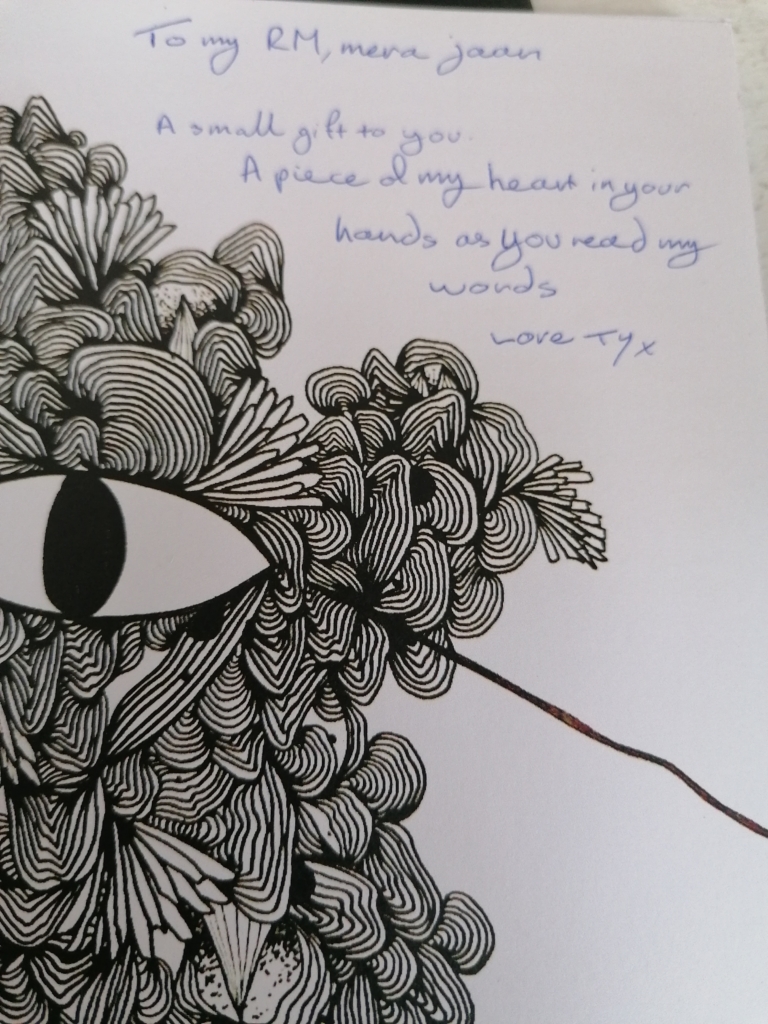 To my RM, mera jaan
A small gift to you.
A piece of my heart in your
hands as you read my
words
Love Ty x